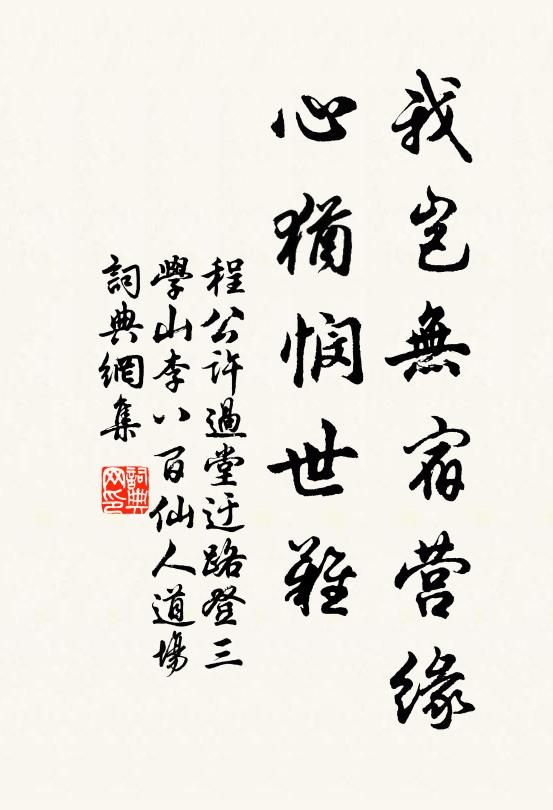 我岂無宿营缘
心猶悯世難
程公许過堂迂路登三
學山李八百仙人道場
詞典網集
詞典網印